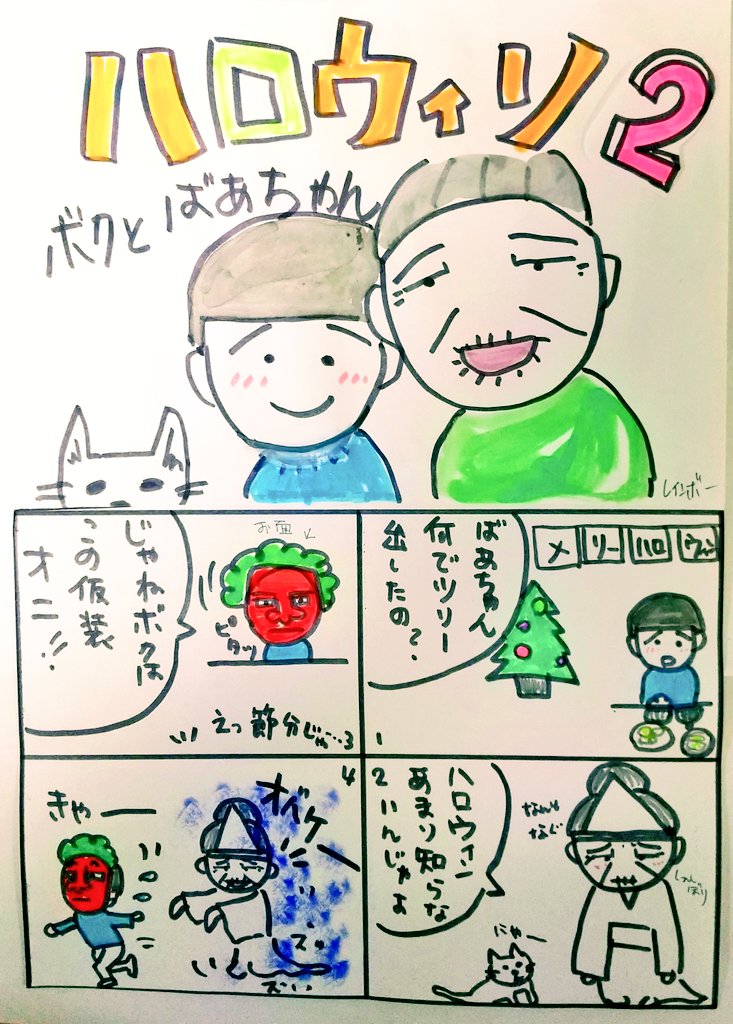 ハロウィン2
ボクとばあちゃん
レインボー
メリーハロウィン
ばあちゃん
何でツリー
出したの?
1
ハロウィン
あまり知らな
いんじゃよ
2
しょんぼり
にゃー
お面
ピタッ
じゃねボクは
この仮装
オニ!!
えっ節分じゃ…
3
4
オバケー
きゃー